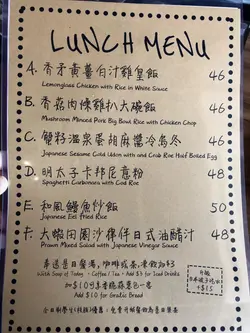 LUNCH MENU
A. 香矛黃薑白汁雞皇飯 46
Lemonglass Chicken with Rice in White Sauce
B. 香菇肉燥雞扒大碗飯 46
Mushroom Minced Pork Big Bowl Rice with Chicken Chop
C. 蟹籽溫泉蛋胡麻醬冷烏冬 46
Japanese Sesame Cold Udon with and Crab Roe Half Boiled Egg
D. 明太子卡邦尼意粉 48
Spaghetti Carbonara with Cod Roe
E. 和風鰻魚炒飯 50
Japanese Eel Fried Rice
F. 大蝦田園沙律伴日式油醋汁 48
Prawn Mixed Salad with Japanese Vinegar Sauce
奉送是日餐湯,咖啡或茶,凍飲加$3
With Soup of Today + Coffee / Tea - Add $3 for Iced Drinks
加$10可享香脆蒜蓉包一客
Add $10 for Garlic Bread